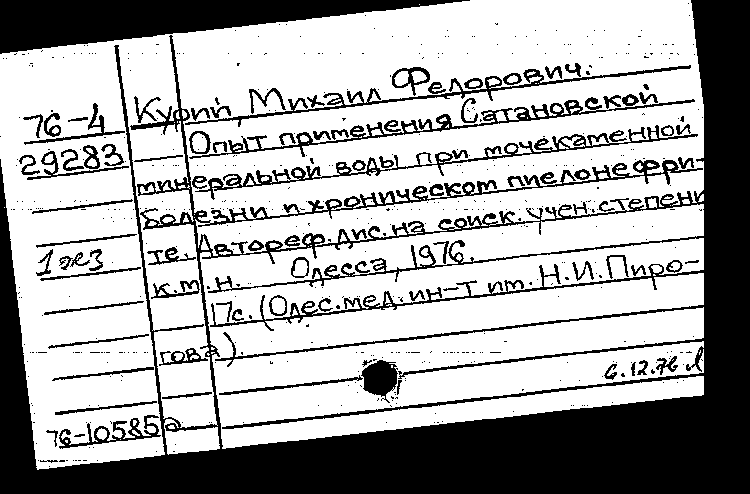 Курий, Михаил Федорович.
76-4
Опыт применения Сатановской
29283
минеральной воды при мочекаменной
болезни и хроническом пиелонефри-
1 экз
те. Автореф. дис. на соиск. учен. степени
к.м.н. Одесса, 1976.
17с. (Одес. мед. ин-т им. Н.И. Пиро-
гова).
6.12.76
76-10585а